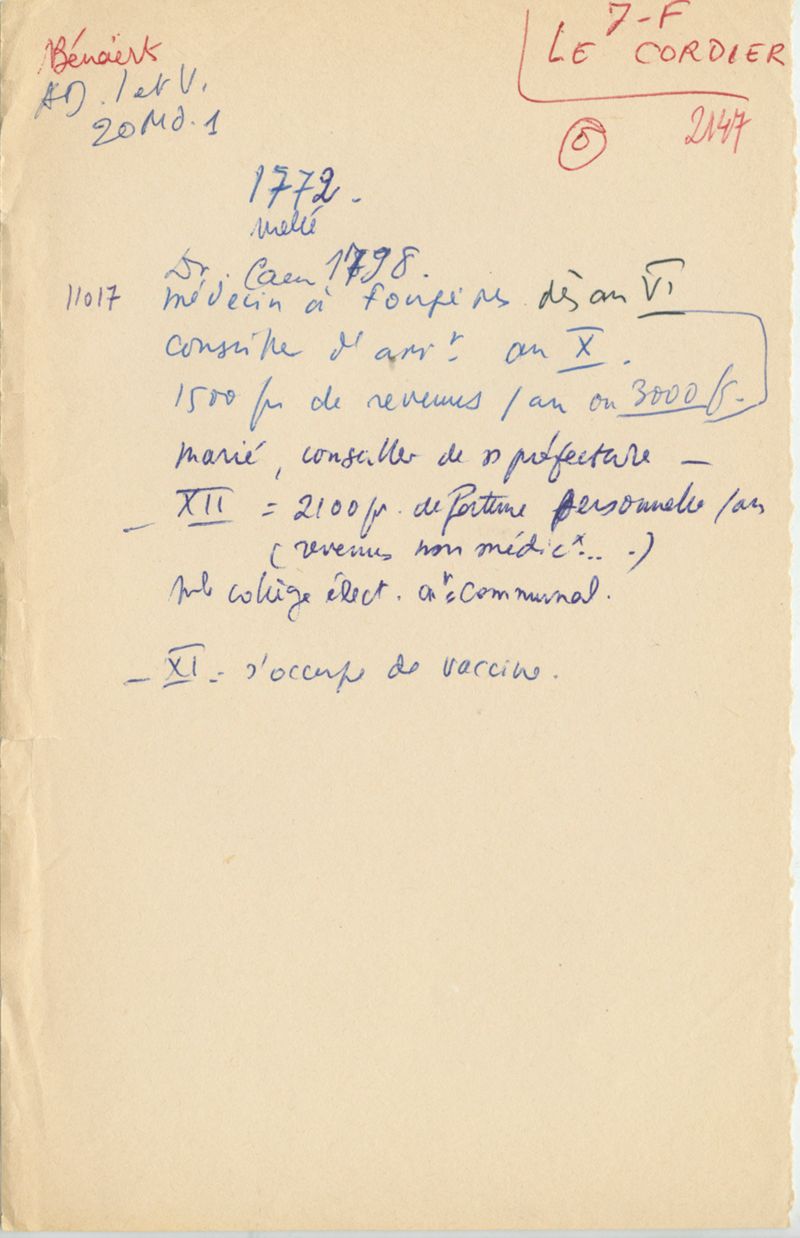 7-F
LE CORDIER
Bénaërt
AD. I et V.
20 Md. 1
⑤ 2147
1772.
Dr. Caen 1798.
11017 médecin à Fougères dès an VI
conseiller d'arrt. an X.
1500 fr de revenus / an ou 3000 fr.
marié, conseiller de ss préfecture —
— XII = 2100 fr. de fortune personnelle / an
(revenus non médicx... .)
collège élect. communal.
— XI = s'occupe de vaccine.